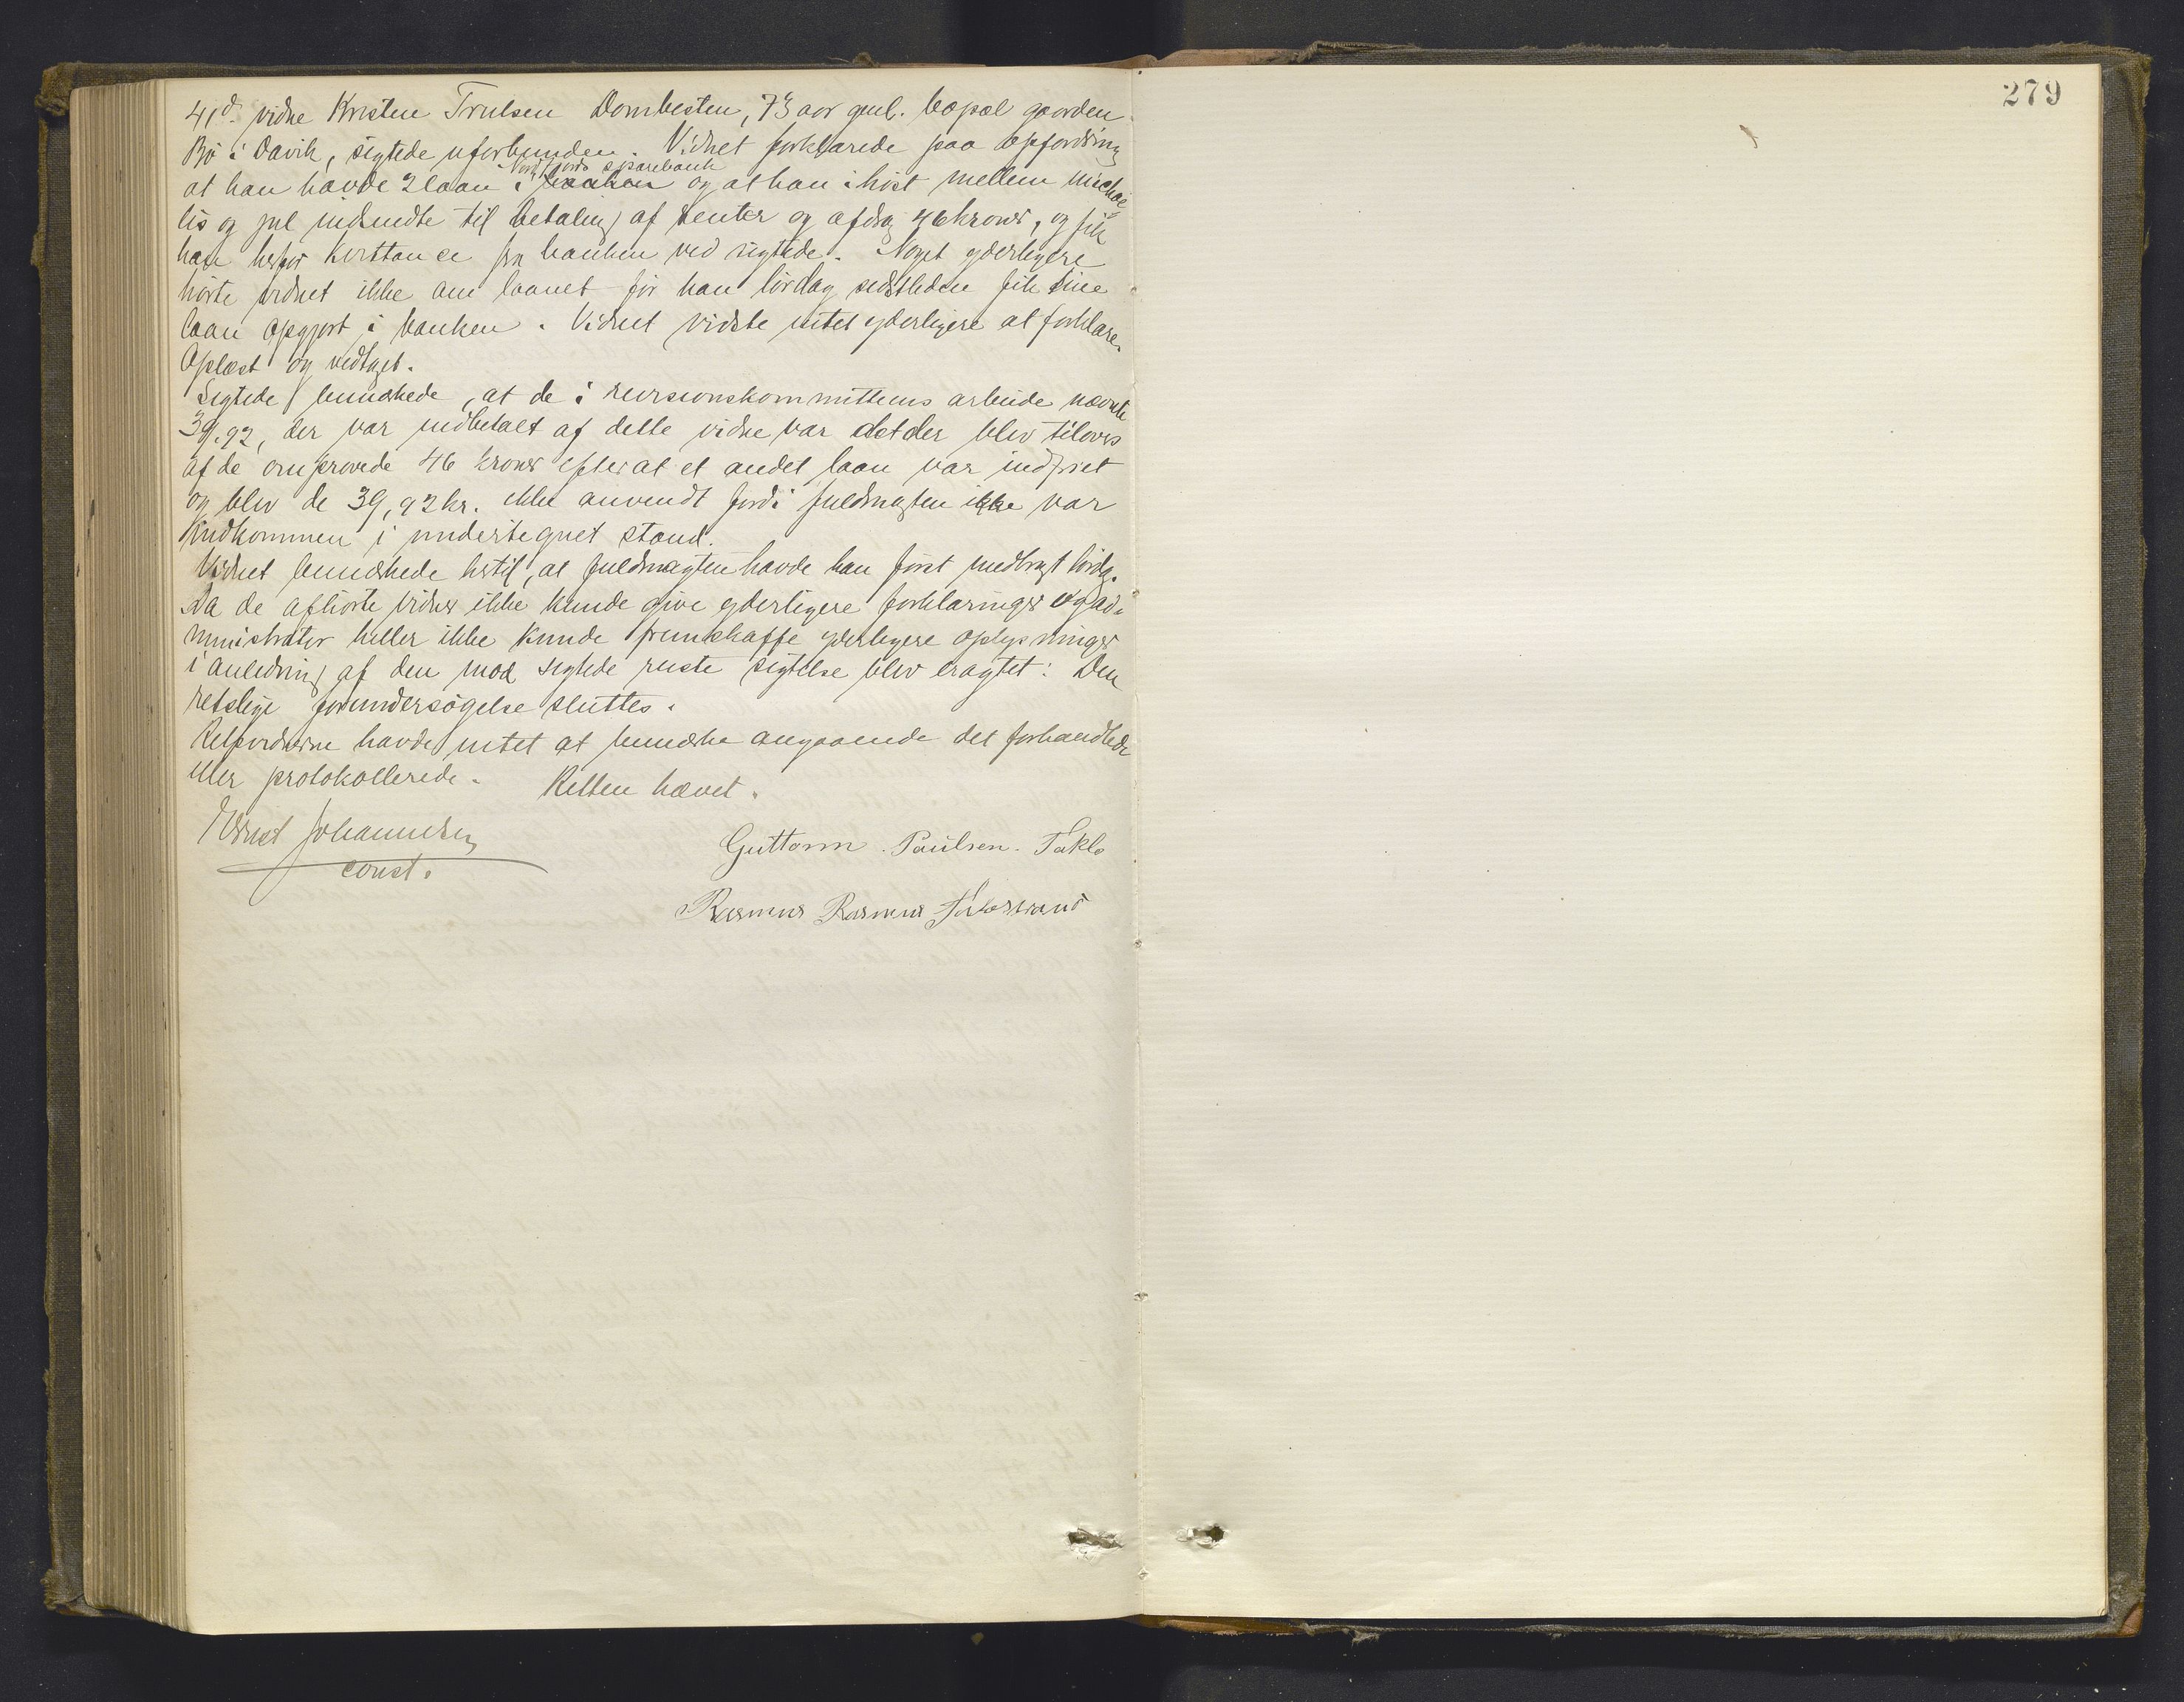 279
41de vidne Kristen Trulsen Dombesten, 73 aar gml. bopæl gaarden
Bø i Davik, sigtede uforbunden. Vidnet forklarede paa opfordring
Nordfjords sparebank
at han havde 2 laan i banken og at han i høst mellem Michae
lis og jul indsendte til betaling af renter og afdrag 46 kroner, og fik
han herfor kvittance fra banken ved sigtede. Noget yderligere
hørte vidnet ikke om laanet før han lørdag sidstleden fik sine
laan opgjort i banken. Vidnet vidste intet yderligere at forklare.
Oplæst og vedtaget.
Sigtede bemærkede, at de i revisionskommitteens arbeide nævnte
39,92, der var indbetalt af dette vidne var det der blev tilovers
af de omprovede 46 kroner efter at et andet laan var indfriet
og blev de 39,92 kr. ikke anvendt fordi fuldmagten ikke var
indkommen i undertegnet stand.
Vidnet bemærkede hertil, at fuldmagten havde han først medbragt lørdag.
Da de afhørte vidner ikke kunde give yderligere forklaringer og ad-
ministrator heller ikke kunde fremskaffe yderligere oplysninger
i anledning af den mod sigtede reiste sigtelse blev eragtet: Den
retslige forundersøgelse sluttes.
Retsvidnerne havde intet at bemærke angaaende det forhandlede
eller protokollerede. Retten hævet.
Ernst Johannesen
const.
Guttorm. Paulsen. Taklo
Rasmus Rasmus